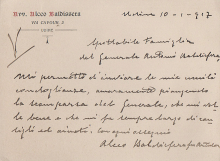 Avv. Alceo Baldissera
Udine
Udine 10-1-917
Spettabile Famiglia
del Generale Antonio Baldissera
Mi permetto d'inviare le mie umili
condoglianze, amaramente piangendo
la scomparsa del Generale, che mi volle
bene e che mi fu sempre largo di con-
sigli ed aiuti. Con ogni ossequio
Alceo Baldissera